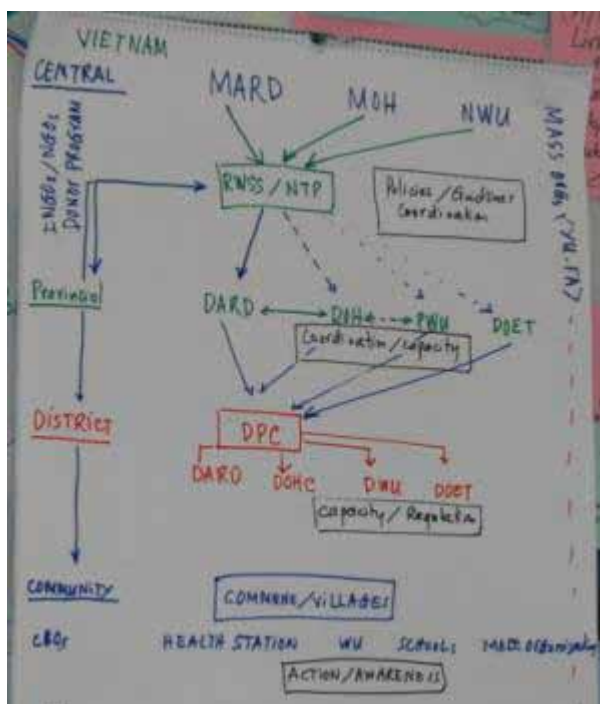 VIETNAM
CENTRAL
MARD MOH NWU
INGOs/NGOs
DONOR PROGRAM
RWSS/NTP
Policies/Guidlines
Coordination
MASS ORGs (YU, FA)
Provincial
DARD DOH PWU DOET
Coordination/capacity
DISTRICT
DPC
DARD DOHC DWU DOET
Capacity/Regulation
COMMUNITY
COMMUNE/VILLAGES
CBOs HEALTH STATION WU SCHOOLs MASS Organization
ACTION/AWARENESS